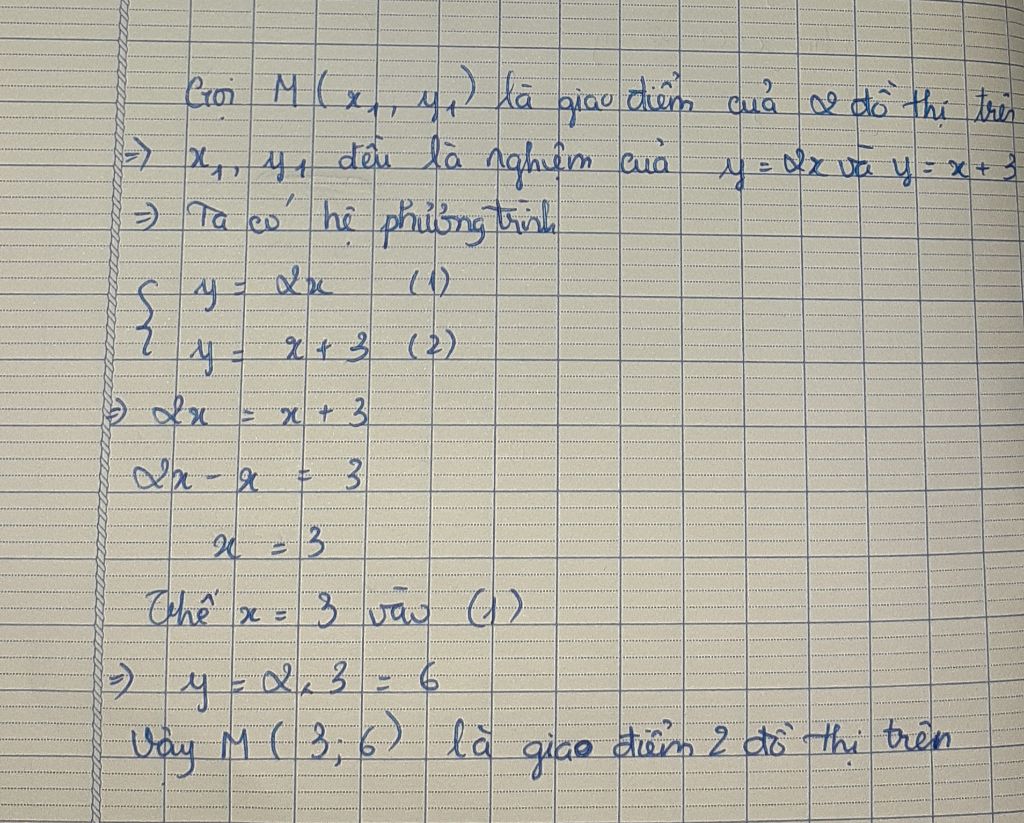 Gọi M(x₁, y₁) là giao điểm của 2 đồ thị trên
=> x₁, y₁ đều là nghiệm của y = 2x và y = x + 3
=> Ta có hệ phương trình
{ y = 2x (1)
y = x + 3 (2)
=> 2x = x + 3
2x - x = 3
x = 3
Thế x = 3 vào (1)
=> y = 2 . 3 = 6
Vậy M( 3; 6) là giao điểm 2 đồ thị trên